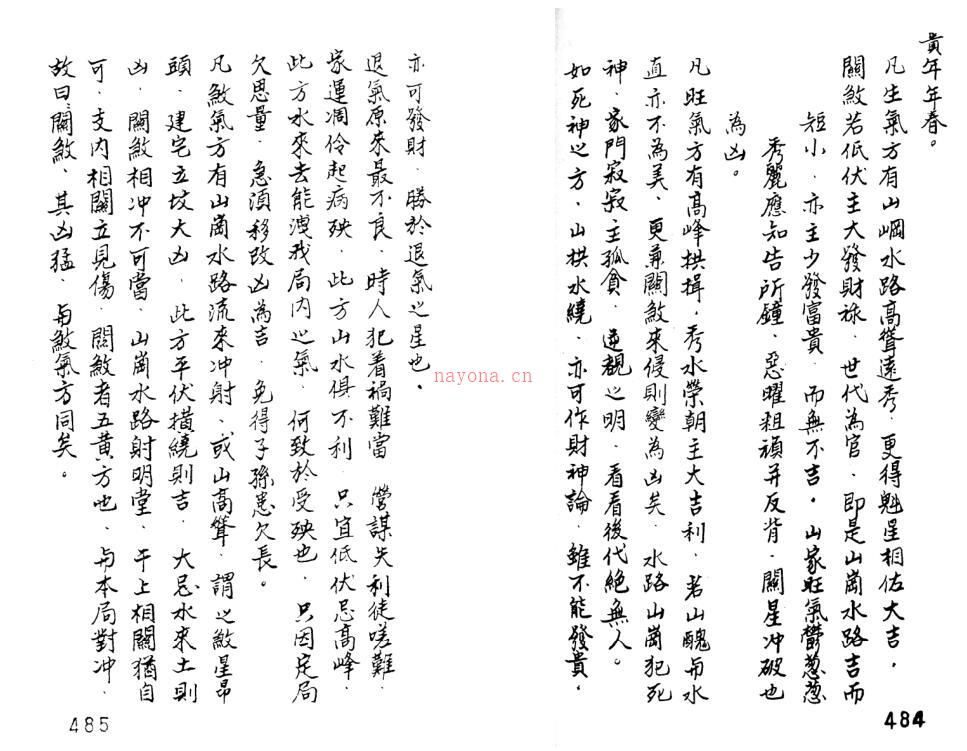 貴年年春。
凡生氣方有山崗水路高聳遠秀．更得魁星相佐大吉，
關煞若低伏主大發財祿．世代為官．即是山崗水路吉而
短小．亦主少發富貴．而無不吉．山家旺氣鬱蔥蔥
秀麗應知告所鐘．惡曜粗頑并反背．關星冲破也
為凶。
凡旺氣方有高峰拱揖，秀水榮朝主大吉利．若山醜与水
直亦不為美、更兼關煞來侵則變為凶矣．水路山崗犯死
神．家門寂寂主孤貪．逆親之明．看看後代絕無人。
如死神之方、山拱水繞．亦可作財神論．雖不能發貴，
484
亦可發財．勝於退氣之星也．
退氣原來最不良、時人犯着禍難當 營謀失利徒嗟難．
家運凋伶起病殃．此方山水俱不利 只宜低伏忌高峰．
此方水來去能洩我局內之氣．何致於受殃也．只因定局
欠思量．急須移改凶為吉．免得子孫患欠長。
凡煞氣方有山崗水路流來冲射、或山高聳．謂之煞星昂
頭．建宅立坟大凶．此方平伏橫繞則吉．大忌水來土則
凶．關煞相冲不可當．山崗水路射明堂．干上相關猶自
可．支內相關立見傷．關煞者五黃方也、与本局對冲．
故曰關煞、其凶猛．与煞氣方同矣。
485
nayona.cn